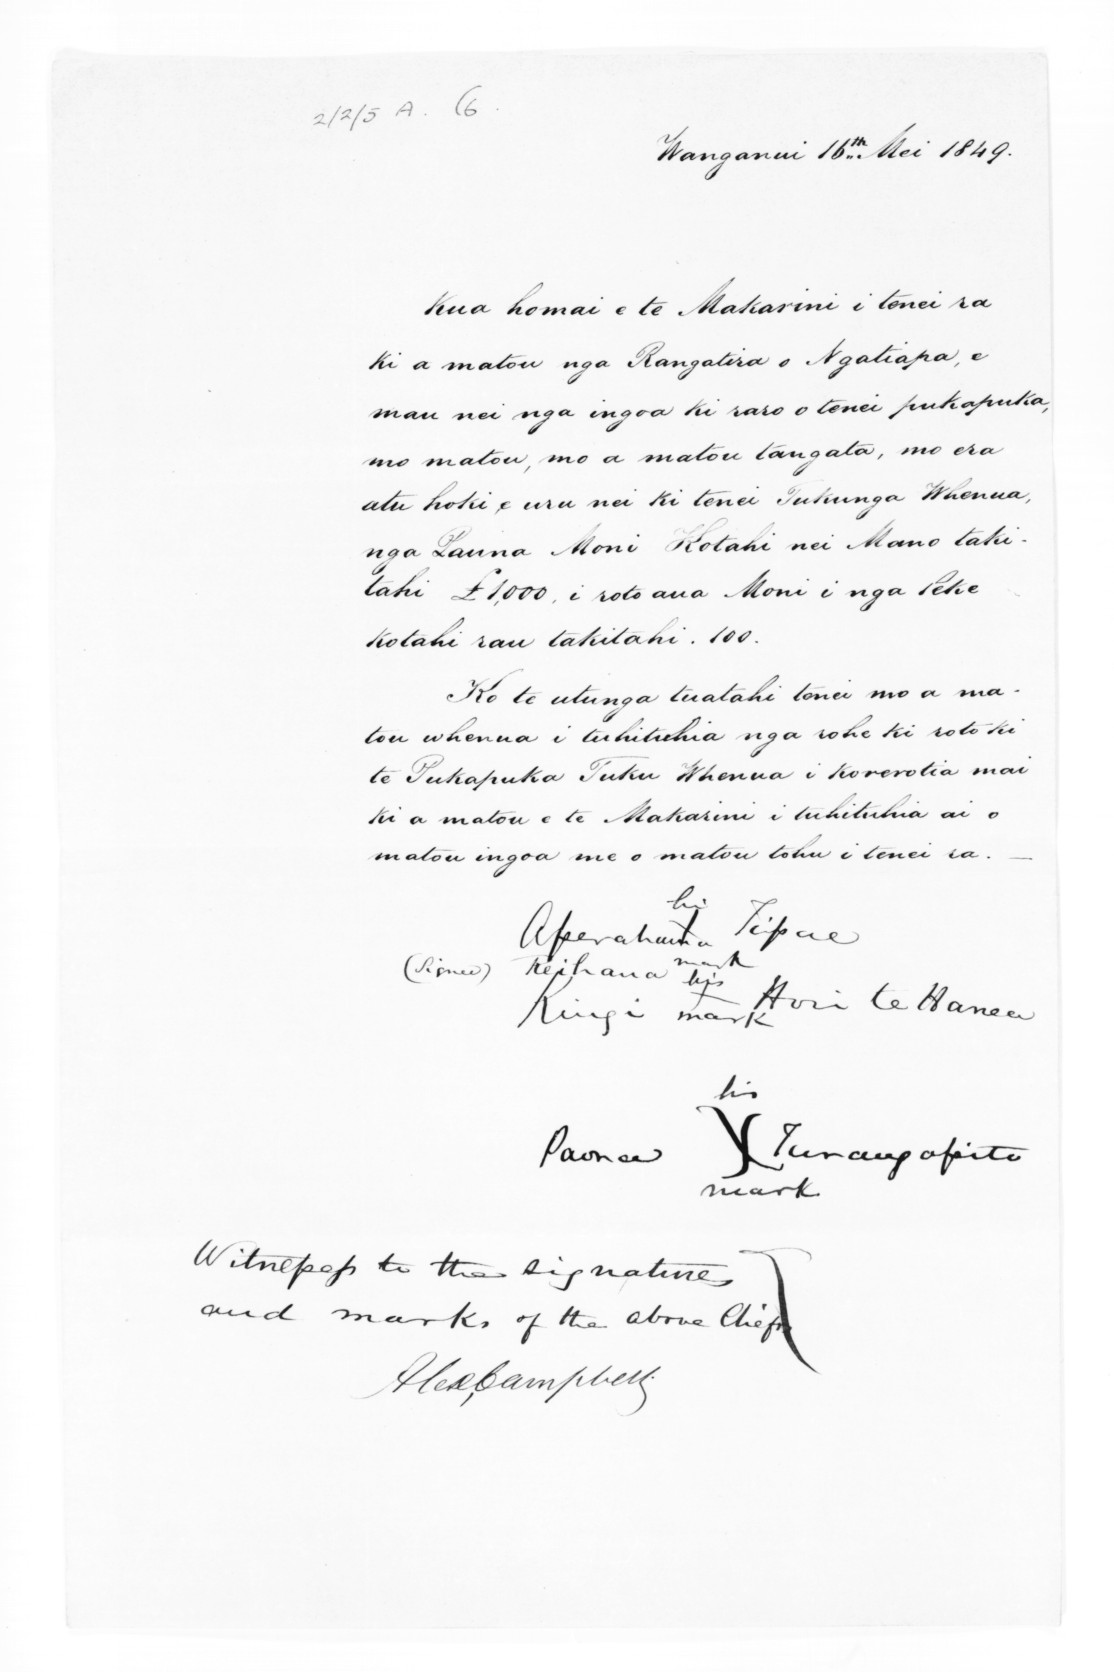 2/2/5 A. (6.
Wanganui 16th Mei 1849.
Kua homai e te Makarini i tenei ra
ki a matou nga Rangatira o Ngatiapa, e
mau nei nga ingoa ki raro o tenei pukapuka,
mo matou, mo a matou tangata, mo era
atu hoki e uru nei ki tenei Tukunga Whenua,
nga Pauna Moni Kotahi nei Mano taki-
tahi £1,000, i roto aua Moni i nga Peke
kotahi rau takitahi. 100.
Ko te utunga tuatahi tenei mo a ma-
tou whenua i tuhituhia nga rohe ki roto ki
te Pukapuka Tuku Whenua i korerotia mai
ki a matou e te Makarini i tuhituhia ai o
matou ingoa me o matou tohu i tenei ra. —
his
Aperahama Tipae
(Signed) Keihana mark
his
Kingi mark Hori te Hanea
his
Paonee Turangapito
mark
Witnesses to the signatures
and marks of the above Chiefs
Alex Campbell